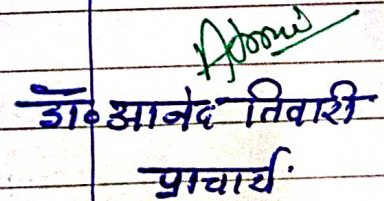 डॉ० आनंद तिवारी
प्राचार्य